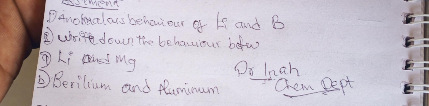 Assignment
1) Anomalous behaviour of Li and B
2) Write down the behaviour betw
a) Li and Mg
b) Berilium and Aluminum
Dr Inah
Chem Dept